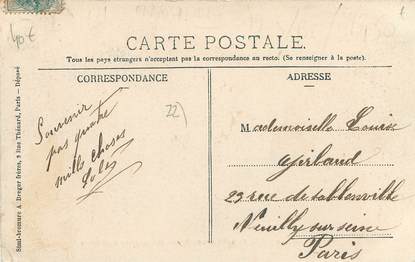 40€
CARTE POSTALE.
Tous les pays étrangers n'acceptent pas la correspondance au recto. (Se renseigner à la poste).
CORRESPONDANCE
ADRESSE
22)
Souvenir
pas quatre
mille choses
Mademoiselle Louise
23 rue de
Neuilly sur seine
Paris
Simi-bromure A. Breger frères, 9 Rue Thénard, Paris — Déposé